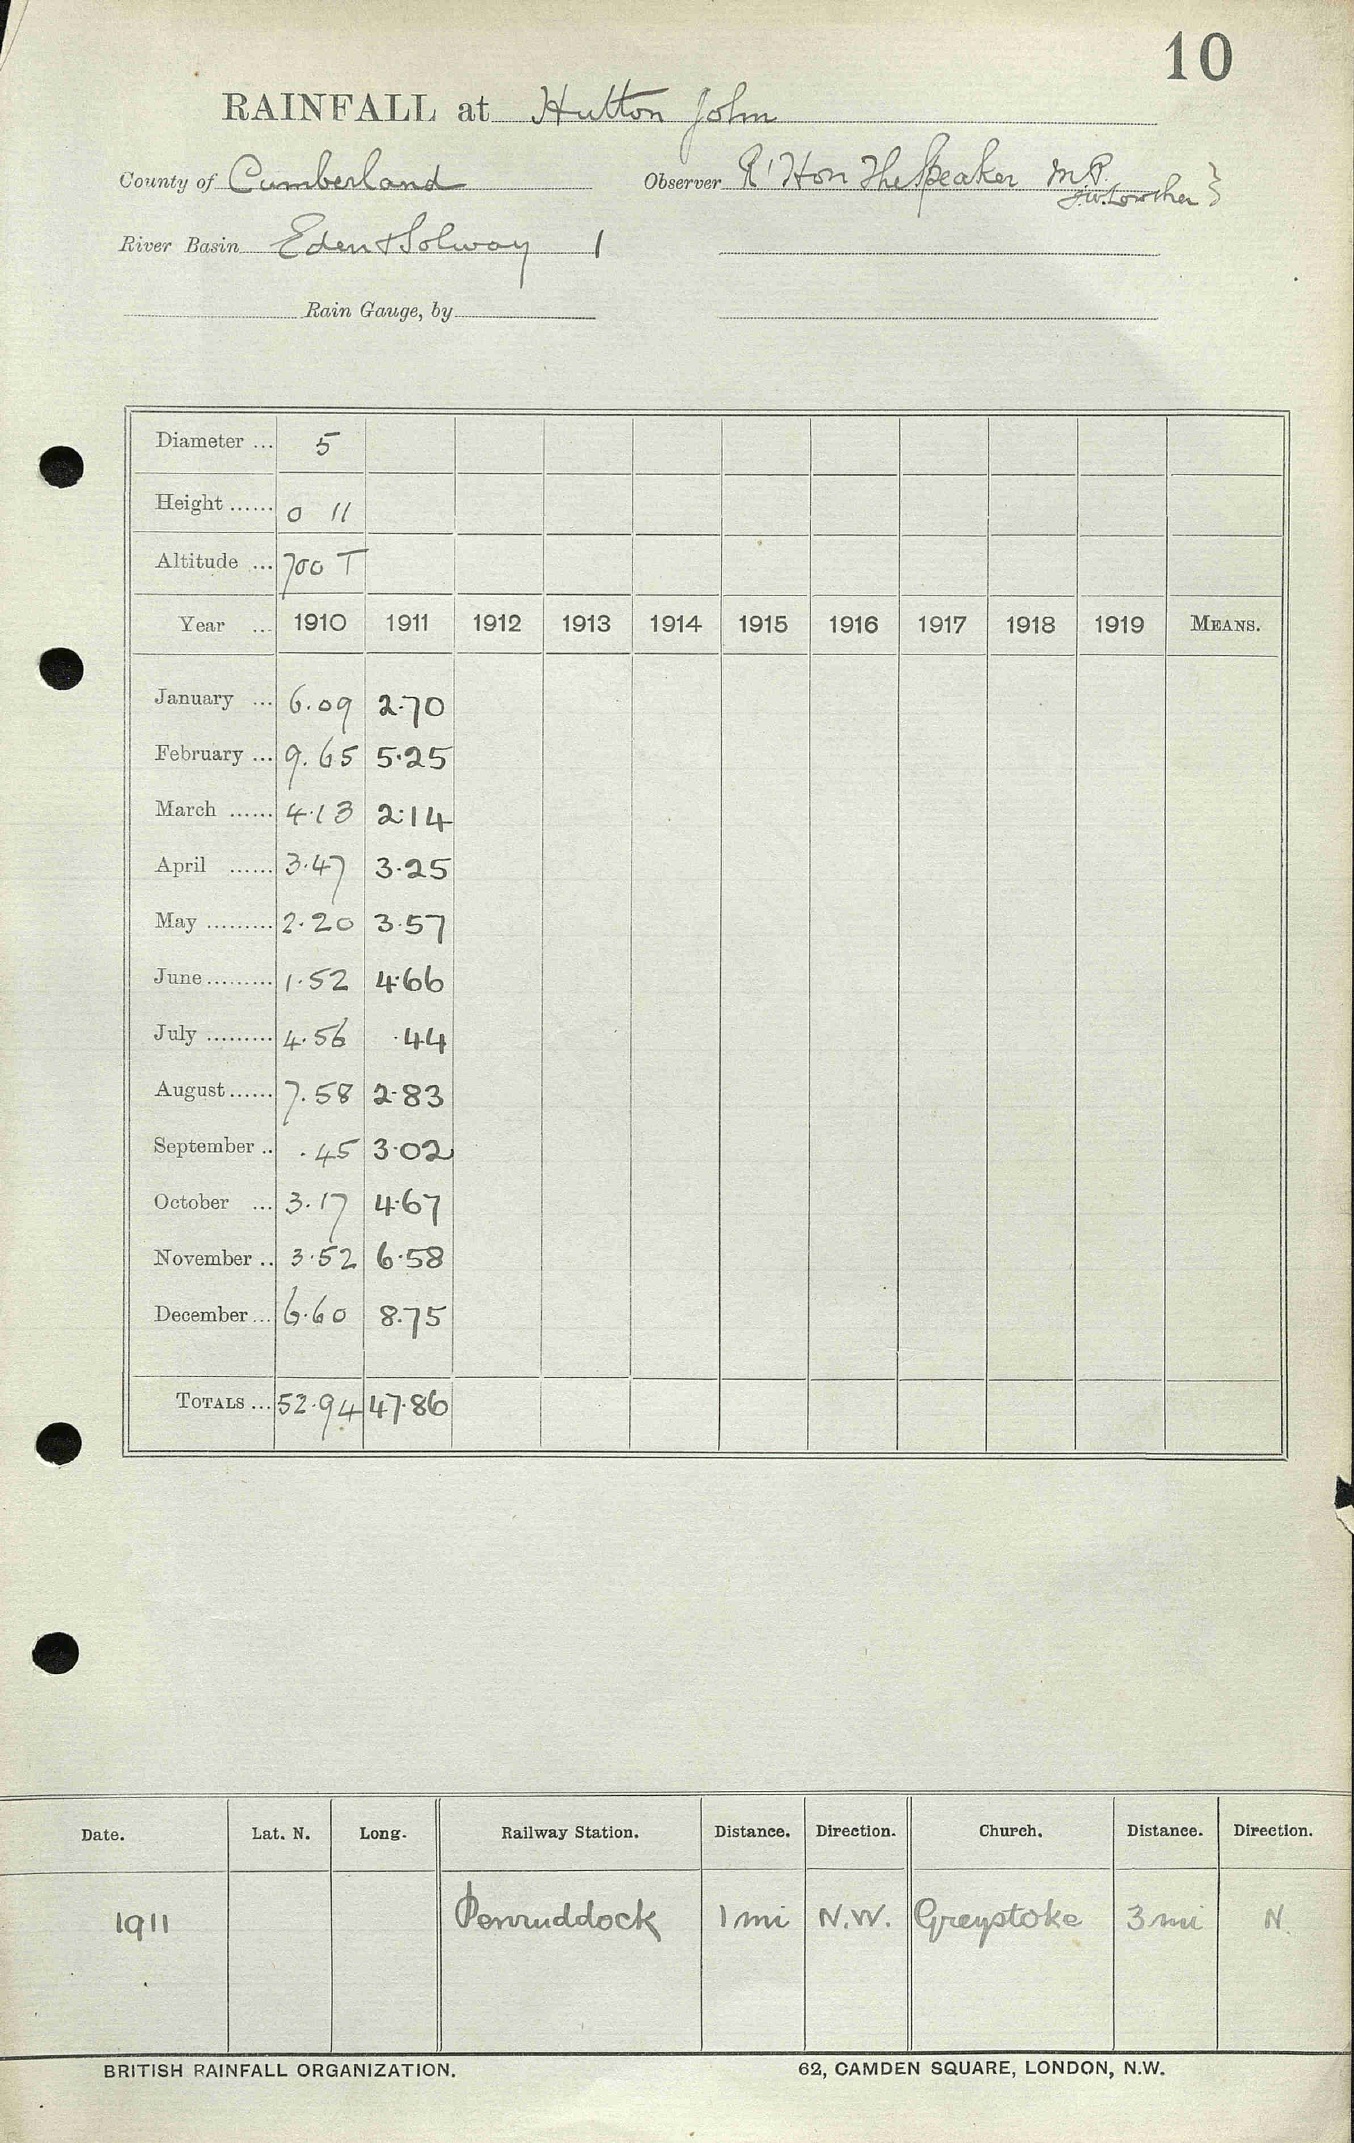 10
RAINFALL at Hutton John
County of Cumberland Observer Rt Hon The Speaker M.P.
J.W. Lowther }
River Basin Eden & Solway 1
Rain Gauge, by
Diameter ... 5
Height ...... 0 11
Altitude ... 700 T
Year ... 1910 1911 1912 1913 1914 1915 1916 1917 1918 1919 MEANS.
January ... 6.09 2.70
February ... 9.65 5.25
March ...... 4.13 2.14
April ...... 3.47 3.25
May ......... 2.20 3.57
June ......... 1.52 4.66
July ......... 4.56 .44
August ...... 7.58 2.83
September .. .45 3.02
October ... 3.17 4.67
November .. 3.52 6.58
December ... 6.60 8.75
TOTALS ... 52.94 47.86
Date. Lat. N. Long. Railway Station. Distance. Direction. Church. Distance. Direction.
1911 Penruddock 1 mi N.W. Greystoke 3 mi N
BRITISH RAINFALL ORGANIZATION. 62, CAMDEN SQUARE, LONDON, N.W.